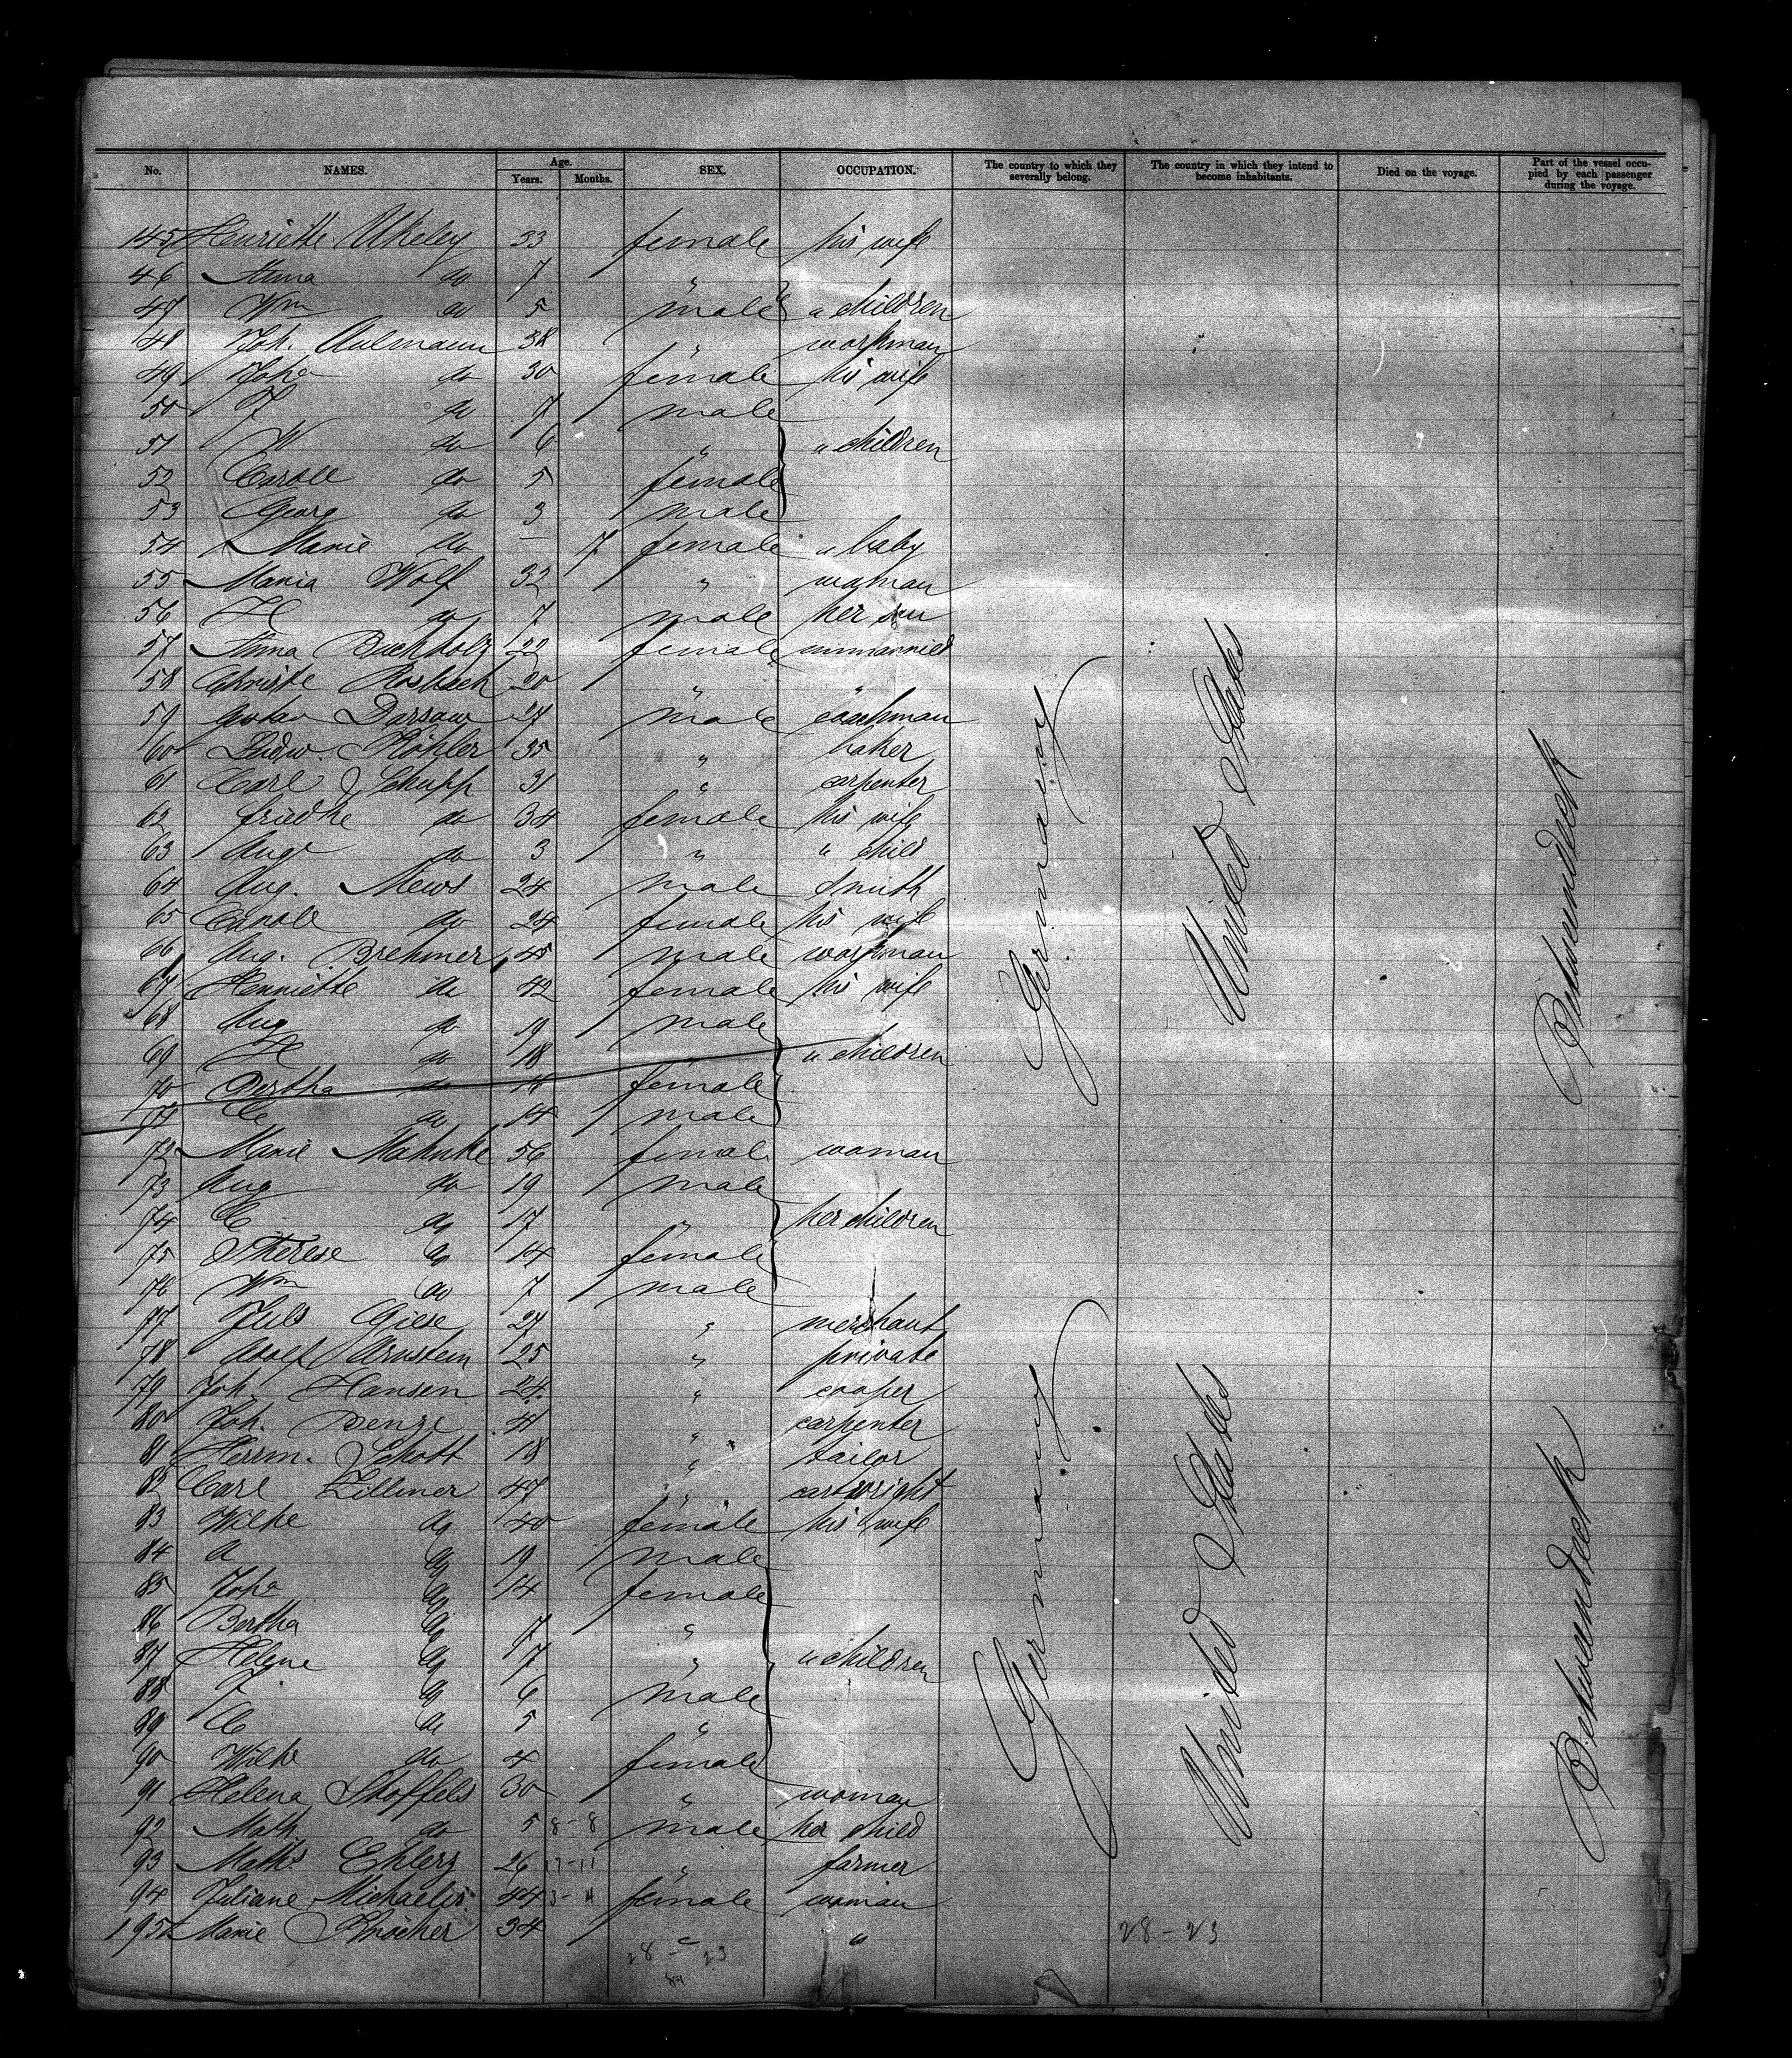 No. NAMES. Age. Years. Months. SEX. OCCUPATION. The country to which they severally belong. The country in which they intend to become inhabitants. Died on the voyage. Part of the vessel occupied by each passenger during the voyage.
145 Henriette 33 female his wife
46 Anna do 7 "
47 Wm do 5 male " children
48 Joh. Aulmann 38 " workman
49 Joha do 30 female his wife
50 F do 7 male
51 W do 6 " " children
52 Caroll do 5 female
53 Georg do 3 male
54 Marie do — 7 female " baby
55 Maria Wolf 32 " woman
56 H do 7 male her son
57 Anna Buchholz 22 female unmarried
58 Christe Rosbach 20 " "
59 Gustav Darsaw 27 male coachman
60 Ludw. Köhler 35 " baker
61 Carl Schupp 31 " carpenter
62 Friedke do 34 female his wife
63 Auge do 3 " " child
64 Aug. Mews 24 male Smith
65 Carole do 24 female his wife
66 Aug. Brehmer 45 male workman
67 Henriette do 42 female his wife
68 Aug do 19 male
69 H do 18 " " children
70 Bertha do 16 female
71 C do 14 male
72 Marie Mahnke 56 female woman
73 Aug do 19 male
74 C do 17 " her children
75 Therese do 14 female
76 Wm do 7 male
77 Juls Giese 27 " merchant
78 Adolf Arnstein 25 " private
79 Joh. Hansen 24 " cooper
80 Joh. Benze 41 " carpenter
81 Herrm. Schott 18 " tailor
82 Carl Zillmer 47 " cartwright
83 Wilhe do 40 female his wife
84 A do 19 male
85 Joha do 14 female
86 Bertha do 7 "
87 Helene do 7 " " children
88 F. do 6 male
89 C do 5 "
90 Wilhe do 4 female
91 Helena Stoffels 30 " woman
92 Math do 5 8-8 male her child
93 Maths Ehlers 26 17-11 " farmer
94 Juliane Michaelis 44 3-4 female woman
195 Marie Knocker 34 " "
Germany United States Betweendeck
Germany United States Betweendeck
28-23 28-23
84